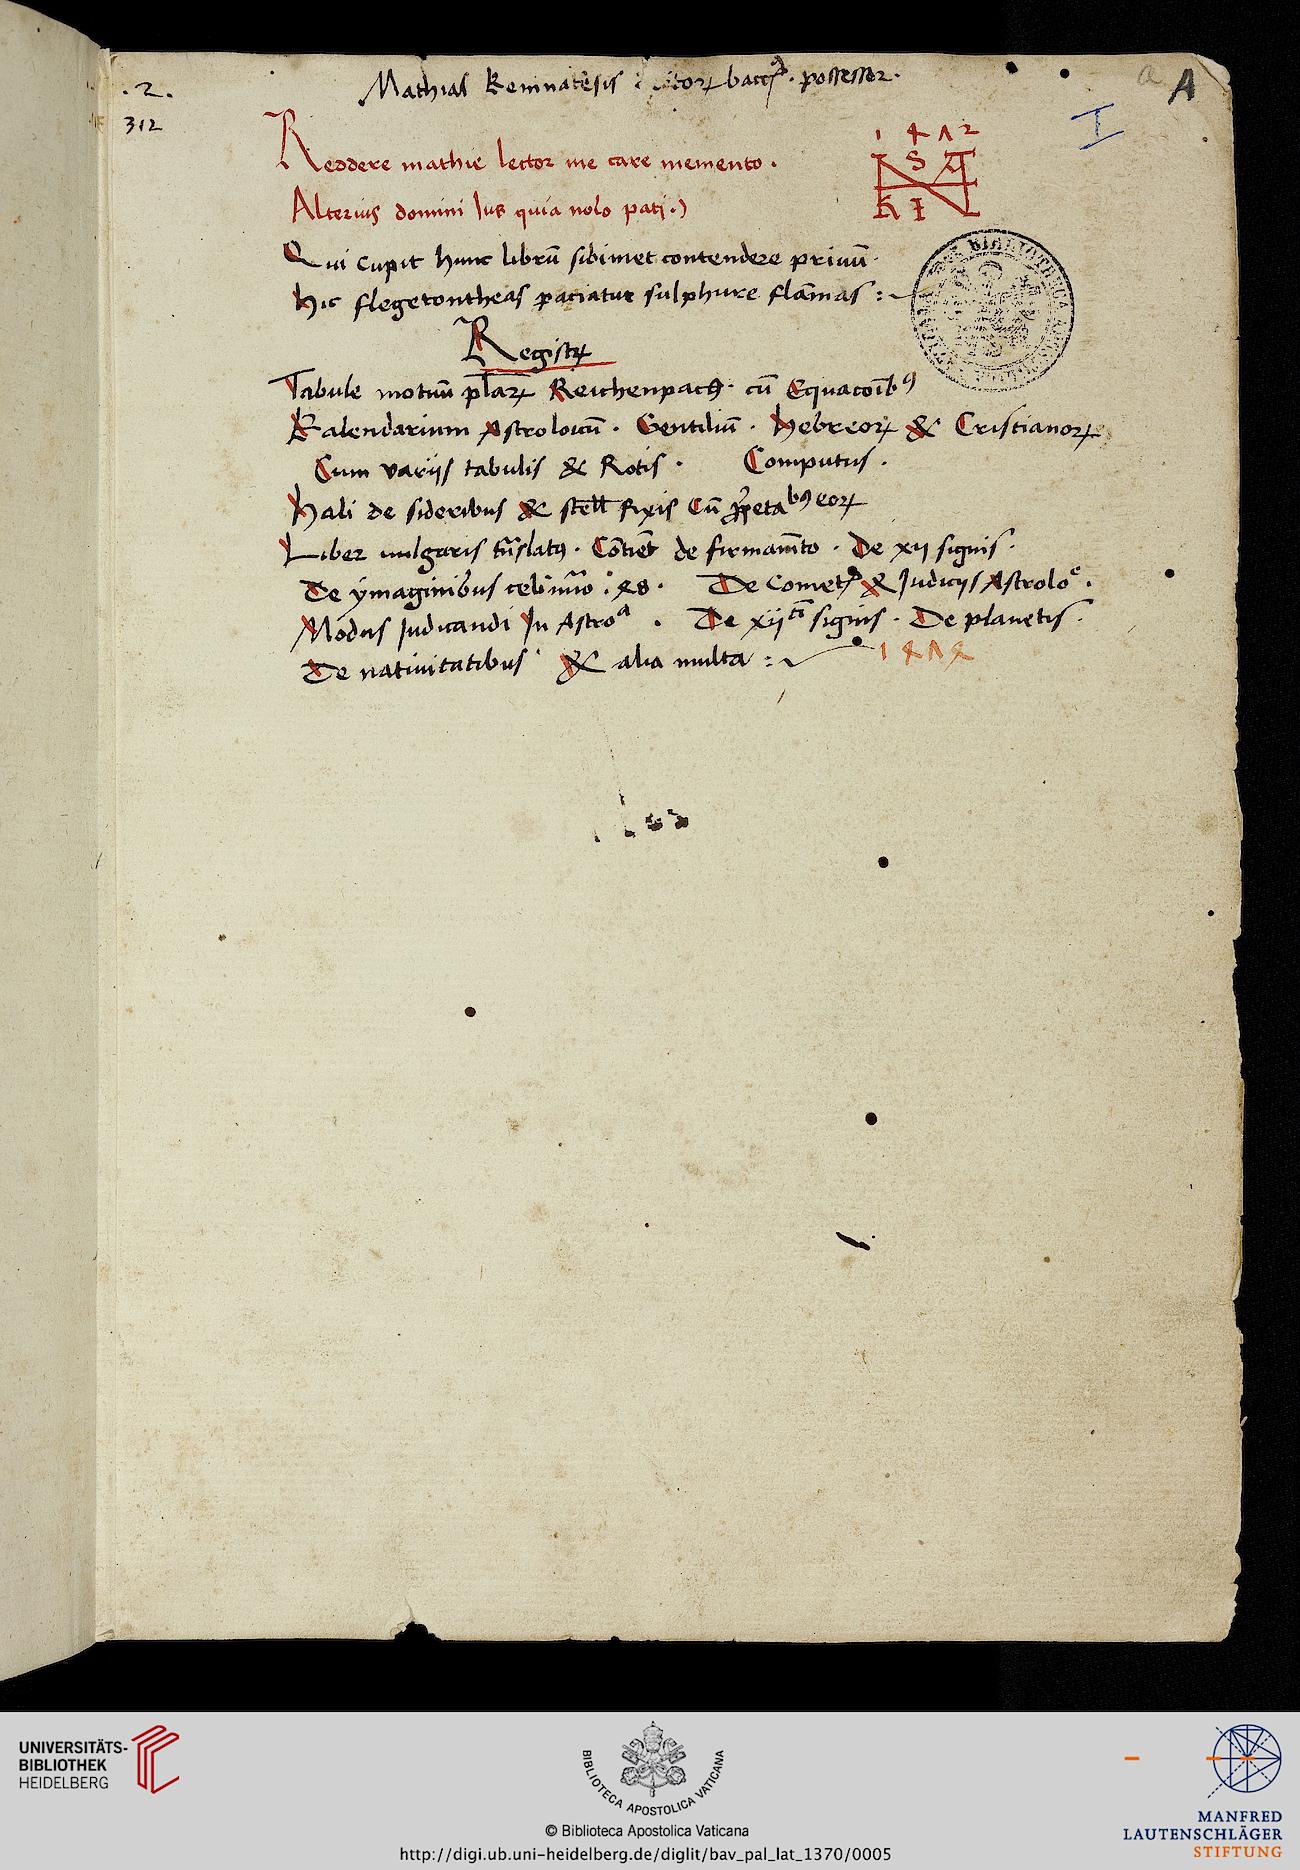 .2.
312
Mathias Kemnatēsis possessor.
a A
I
Reddere mathie lector me care memento.
Alterius domini Ius quia nolo pati.)
1 4 7 2
S A
K I
Qui cupit hunc librū sibimet contendere priuū.
Hic flegetontheas paciatur sulphure flāmas :
BIBLIOTHECA
Registꝝ
Tabule motuū pltaꝝ Reichenpach. cū Equacoībꝰ
Kalendarium Astroloicū. Gentiliū. Hebreoꝝ & Cristianoꝝ
Cum variis tabulis & Rotis. Computus.
Hali de sideribus & stell fixis Cū eoꝝ
Liber vulgaris trāslatꝰ. Cōtiēt de firmamēto. De xij signis.
De ymaginibus celi 48. De Comet & Iudiciis Astrolo.
Modus Iudicandi In Astroᵃ. De xij signis. De planetis.
De nativitatibus & alia multa : 1 4 7 4
UNIVERSITÄTS-
BIBLIOTHEK
HEIDELBERG
BIBLIOTECA APOSTOLICA VATICANA
© Biblioteca Apostolica Vaticana
http://digi.ub.uni-heidelberg.de/diglit/bav_pal_lat_1370/0005
MANFRED
LAUTENSCHLÄGER
STIFTUNG